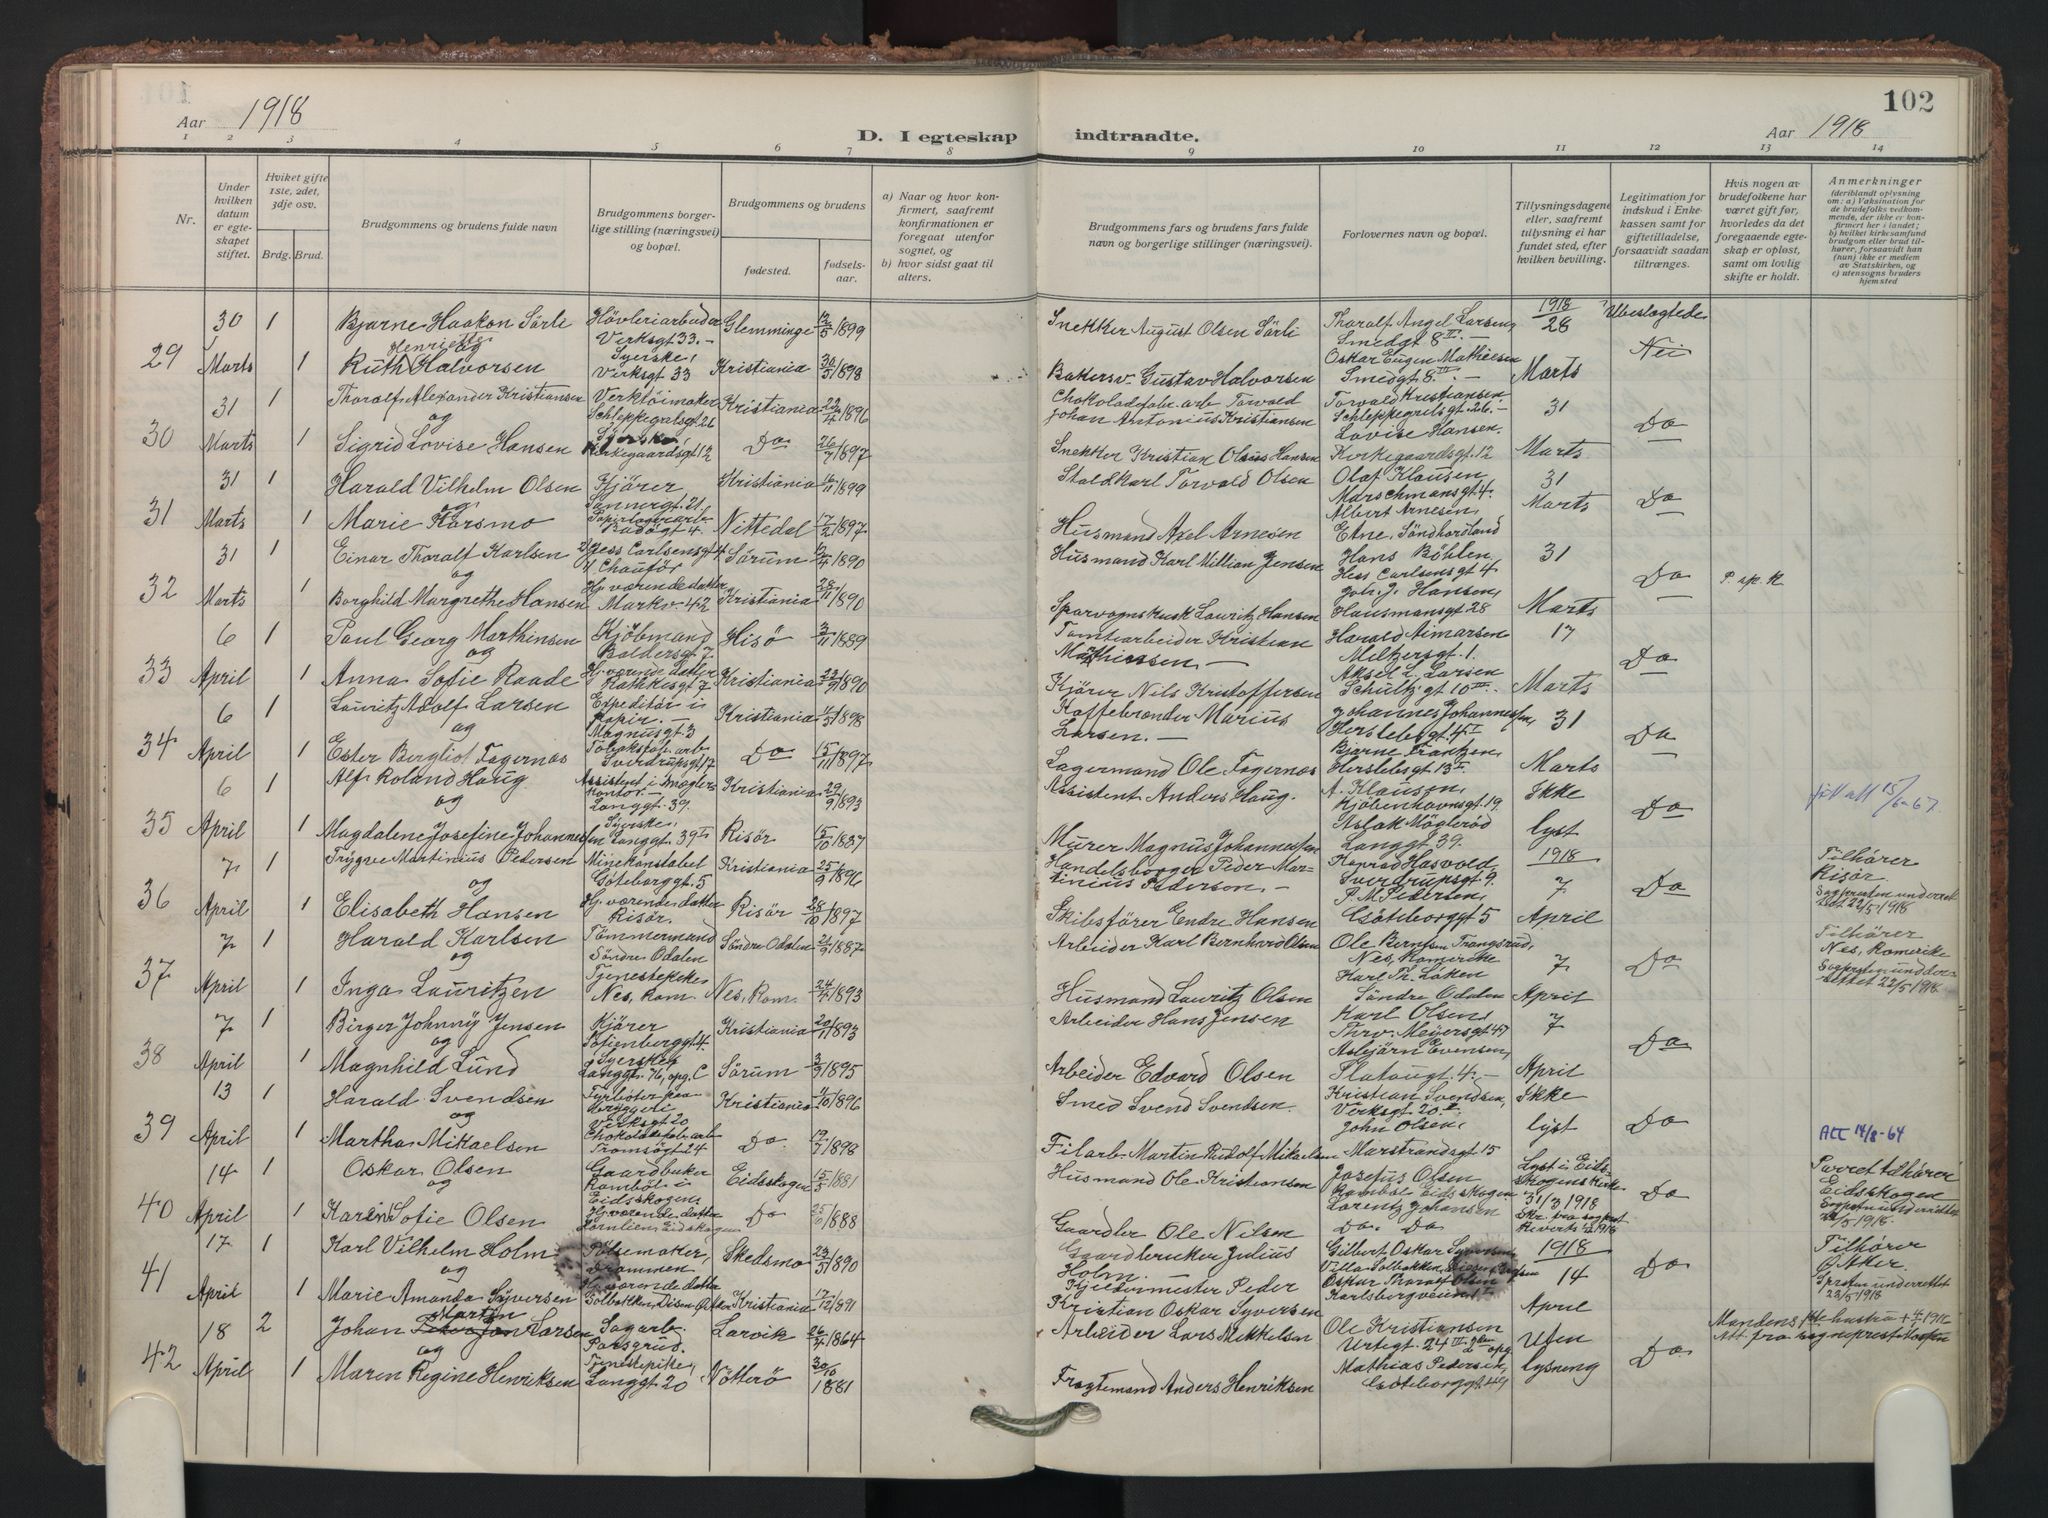 Aar 1918
D. I egteskap
indtraadte.
102
Aar 1918
1 2 3 4 5 6 7 8 9 10 11 12 13 14
Nr.
Under hvilken datum er egteskapet stiftet.
Hviket gifte 1ste, 2det, 3dje osv.
Brdg. Brud.
Brudgommens og brudens fulde navn
Brudgommens borgerlige stilling (næringsvei) og bopæl.
Brudgommens og brudens
fødested.
fødselsaar.
a) Naar og hvor konfirmert, saafremt konfirmationen er foregaat utenfor sognet, og
b) hvor sidst gaat til alters.
Brudgommens fars og brudens fars fulde navn og borgerlige stillinger (næringsvei).
Forlovernes navn og bopæl.
Tillysningsdagene eller, saafremt tillysning ei har fundet sted, efter hvilken bevilling.
Legitimation for indskud i Enkekassen samt for giftetilladelse, forsaavidt saadan tiltrænges.
Hvis nogen av brudefolkene har været gift før, hvorledes da det foregaaende egteskap er opløst, samt om lovlig skifte er holdt.
Anmerkninger
(deriblandt oplysning om: a) Vaksination for de brudefolks vedkommende, der ikke er konfirmert her i landet; b) hvilket kirkesamfund brudgom eller brud tilhører, forsaavidt han (hun) ikke er medlem av Statskirken, og c) utensogns bruders hjemsted
29
30 Marts 1 Bjarne Haakon Sörli Hövleriarbeider Verksgt 33. Glemminge 12/5 1899 Snekker August Olsen Sörli Thoralf Angel Larsen, Smedgt 8 II. 1918 28 Ubeslogtede
og
1 Ruth Henriette Halvorsen Syerske, Verksgt 33 Kristiania 30/5 1898 Bakersv. Gustav Halvorsen Oskar Eugen Mathiesen Smedgt 8 III. Marts Nei
30
31 Marts 1 Thoralf Alexander Kristiansen Verktöimaker Schleppegrelsgt 26 Kristiania 22/4 1896 Chokoladefabr. arb Torvald Johan Antonius Kristiansen Torvald Kristiansen Schleppegrelsgt. 26. 31 Do
og
1 Sigrid Lovise Hansen Syerske, Kirkegaardsgt 12 Do 26/7 1897 Snekker Kristian Olaus Hansen Lovise Hansen. Kirkegaardsgt. 12 Marts
31
31 Marts 1 Harald Vilhelm Olsen Kjörer Sannergt. 21 Kristiania 16/11 1899 Staldkarl Torvald Olsen Olaf Klausen Marschmansgt 4. 31 Do
og
1 Marie Korsmo Papirlagerarb. Badögt 4. Nittedal 17/2 1897 Husmand Axel Arnesen Albert Arnesen, Etne, Söndhordland Marts
32
31 Marts 1 Einar Thoralf Karlsen Hess Carlsensgt 4 Chauför Sörum 12/4 1890 Husmand Karl Millian Jensen Hans Böhlen, Hess Carlsensgt 4 31 Do P. sp. k
og
1 Borghild Margrethe Hansen Hj. værende datter Markv. 42 Kristiania 28/11 1890 Sporvognskusk Lauritz Hansen Joh. J. Hansen, Hausmansgt 28 Marts
33
6 April 1 Paul Georg Marthinsen Kjöbmand Baldersgt 7 Hisö 3/11 1889 Tomtearbeider Kristian Mathiesen Harald Aimarsen Miltzersgt. 1. 17 Do
og
1 Anna Sofie Raade Hj. værende datter Rathkesgt 7 Kristiania 22/9 1890 Kjörer Nils Kristoffersen Aksel L. Larsen Schultz gt 10 III. Marts
34
6 April 1 Lauritz Adolf Larsen Expeditör i papir. Magnusgt. 3 Kristiania 11/3 1898 Kaffebrænder Marius Larsen. Johannes Johannesen, Herslebsgt. 4 I 31 Do
og
1 Ester Bergliot Fagernæs Tobaksfabr. arb Sverdrupsgt 17 Do 15/11 1897 Lagermand Ole Fagernæs Bjarne Frantzen, Herslebsgt 13 I. Marts
35
6 April 1 Alf Roland Haug Assistent i mæglerkontor. Langgt. 39. Kristiania 29/9 1893 Assistent Anders Haug. A. Klausen, Kjöbenhavnsgt. 19 Ikke Do
og
1 Magdalene Josefine Johannessen Syerske, Langgt. 39 II Risör 15/10 1887 Murer Magnus Johannessen Aslak Möglerød Langgt 39. lyst
36
7 April 1 Trygve Martinius Pedersen Minekonstabel Göteborggt. 5 Kristiania 25/9 1896 Handelsborger Peder Martinius Pedersen. Konrad Hasvold Sverdrupsgt 9. 1918 7 Do Tilhører Risør. Sognpresten underrettet 22/5-1918
og
1 Elisabeth Hansen Hj. værende datter Risör. Risör 28/10 1897 Skibsförer Endre Hansen P. M. Pedersen, Göteborggt 5 April
37
7 April 1 Harald Karlsen Tömmermand Söndre Odalen Söndre Odalen 21/9 1887 Arbeider Karl Bernhard Olsen Ole Berntsen Trangsrud, Nes, Romerike 7 Do Tilhører Nes, Romerike Sognpresten underrettet 22/5 1918
og
1 Inga Lauritzen Tjenestepike Nes, Rom. Nes, Rom. 24/4 1893 Husmand Lauritz Olsen Karl Th. Löken Söndre Odalen April
38
7 April 1 Birger Johnny Jensen Kjörer Sofienberggt. 4. Kristiania 20/11 1893 Arbeider Hans Jensen Karl Olsen Thrv. Meyersgt 47 7 Do
og
1 Magnhild Lund Syerske Langgt. 76, opg. C Sörum 3/9 1895 Arbeider Edvard Olsen Asbjörn Evensen, Platougt 4. April
39
13 April 1 Harald Svendsen Fyrböter paa bryggeri Verksgt 20 Kristiania 11/10 1896 Smed Svend Svendsen. Kristian Svendsen, Verksgt. 20 II. Ikke Do
og
1 Martha Mikaelsen Chokoladefabr. arb Tromsögt 24 Do 19/7 1898 Filarb. Martin Rudolf Mikaelsen John Olsen, Marstrandsgt 15 lyst Att 14/8-64
40
14 April 1 Oskar Olsen Gaardbruker Ramböl i Eidsskogen Eidsskogen 15/5 1881 Husmand Ole Kristiansen Josefus Olsen Ramböl Eidsskogen Lyst i Eidskogens Kirke 31/3 1918 Do Parret tilhører Eidskogen
og
1 Karen Sofie Olsen Hj. værende datter Hornlien, Eidskogen Do 25/6 1888 Gaardbr Ole Nilsen Lorentz Johansen Do. Do
41
17 April 1 Karl Vilhelm Holm Pölsemaker, Drammen Skedsmo 23/5 1890 Gaardbruker Julius Holm. Gilbert Oskar Syversen 1918 14 Do Tilhører Ø. Aker. Spresten underrettet 23/5 1918
og
1 Marie Amanda Syversen Hj. værende datter Solbakken, Disen, Østre Aker Kristiania 17/12 1891 Kjeldermester Peder Kristian Oskar Syversen Oskar Thoralf Olsen Karlsbergveien April
42
18 April 2 Johan Martin Larsen Sagarb. Porsgrun. Larvik 26/4 1864 Arbeider Lars Mikkelsen Ole Kristiansen Urtegt. 24 III 2den opg Uten Do Mandens 1ste hustru + 4/7 1916 Att fra sogneprest
og
1 Maren Regine Henriksen Tjenestepike, Langgt 20 Nötterö 30/10 1881 Fragtemand Anders Henriksen Mathias Pedersen, Göteborggt 49 lysning